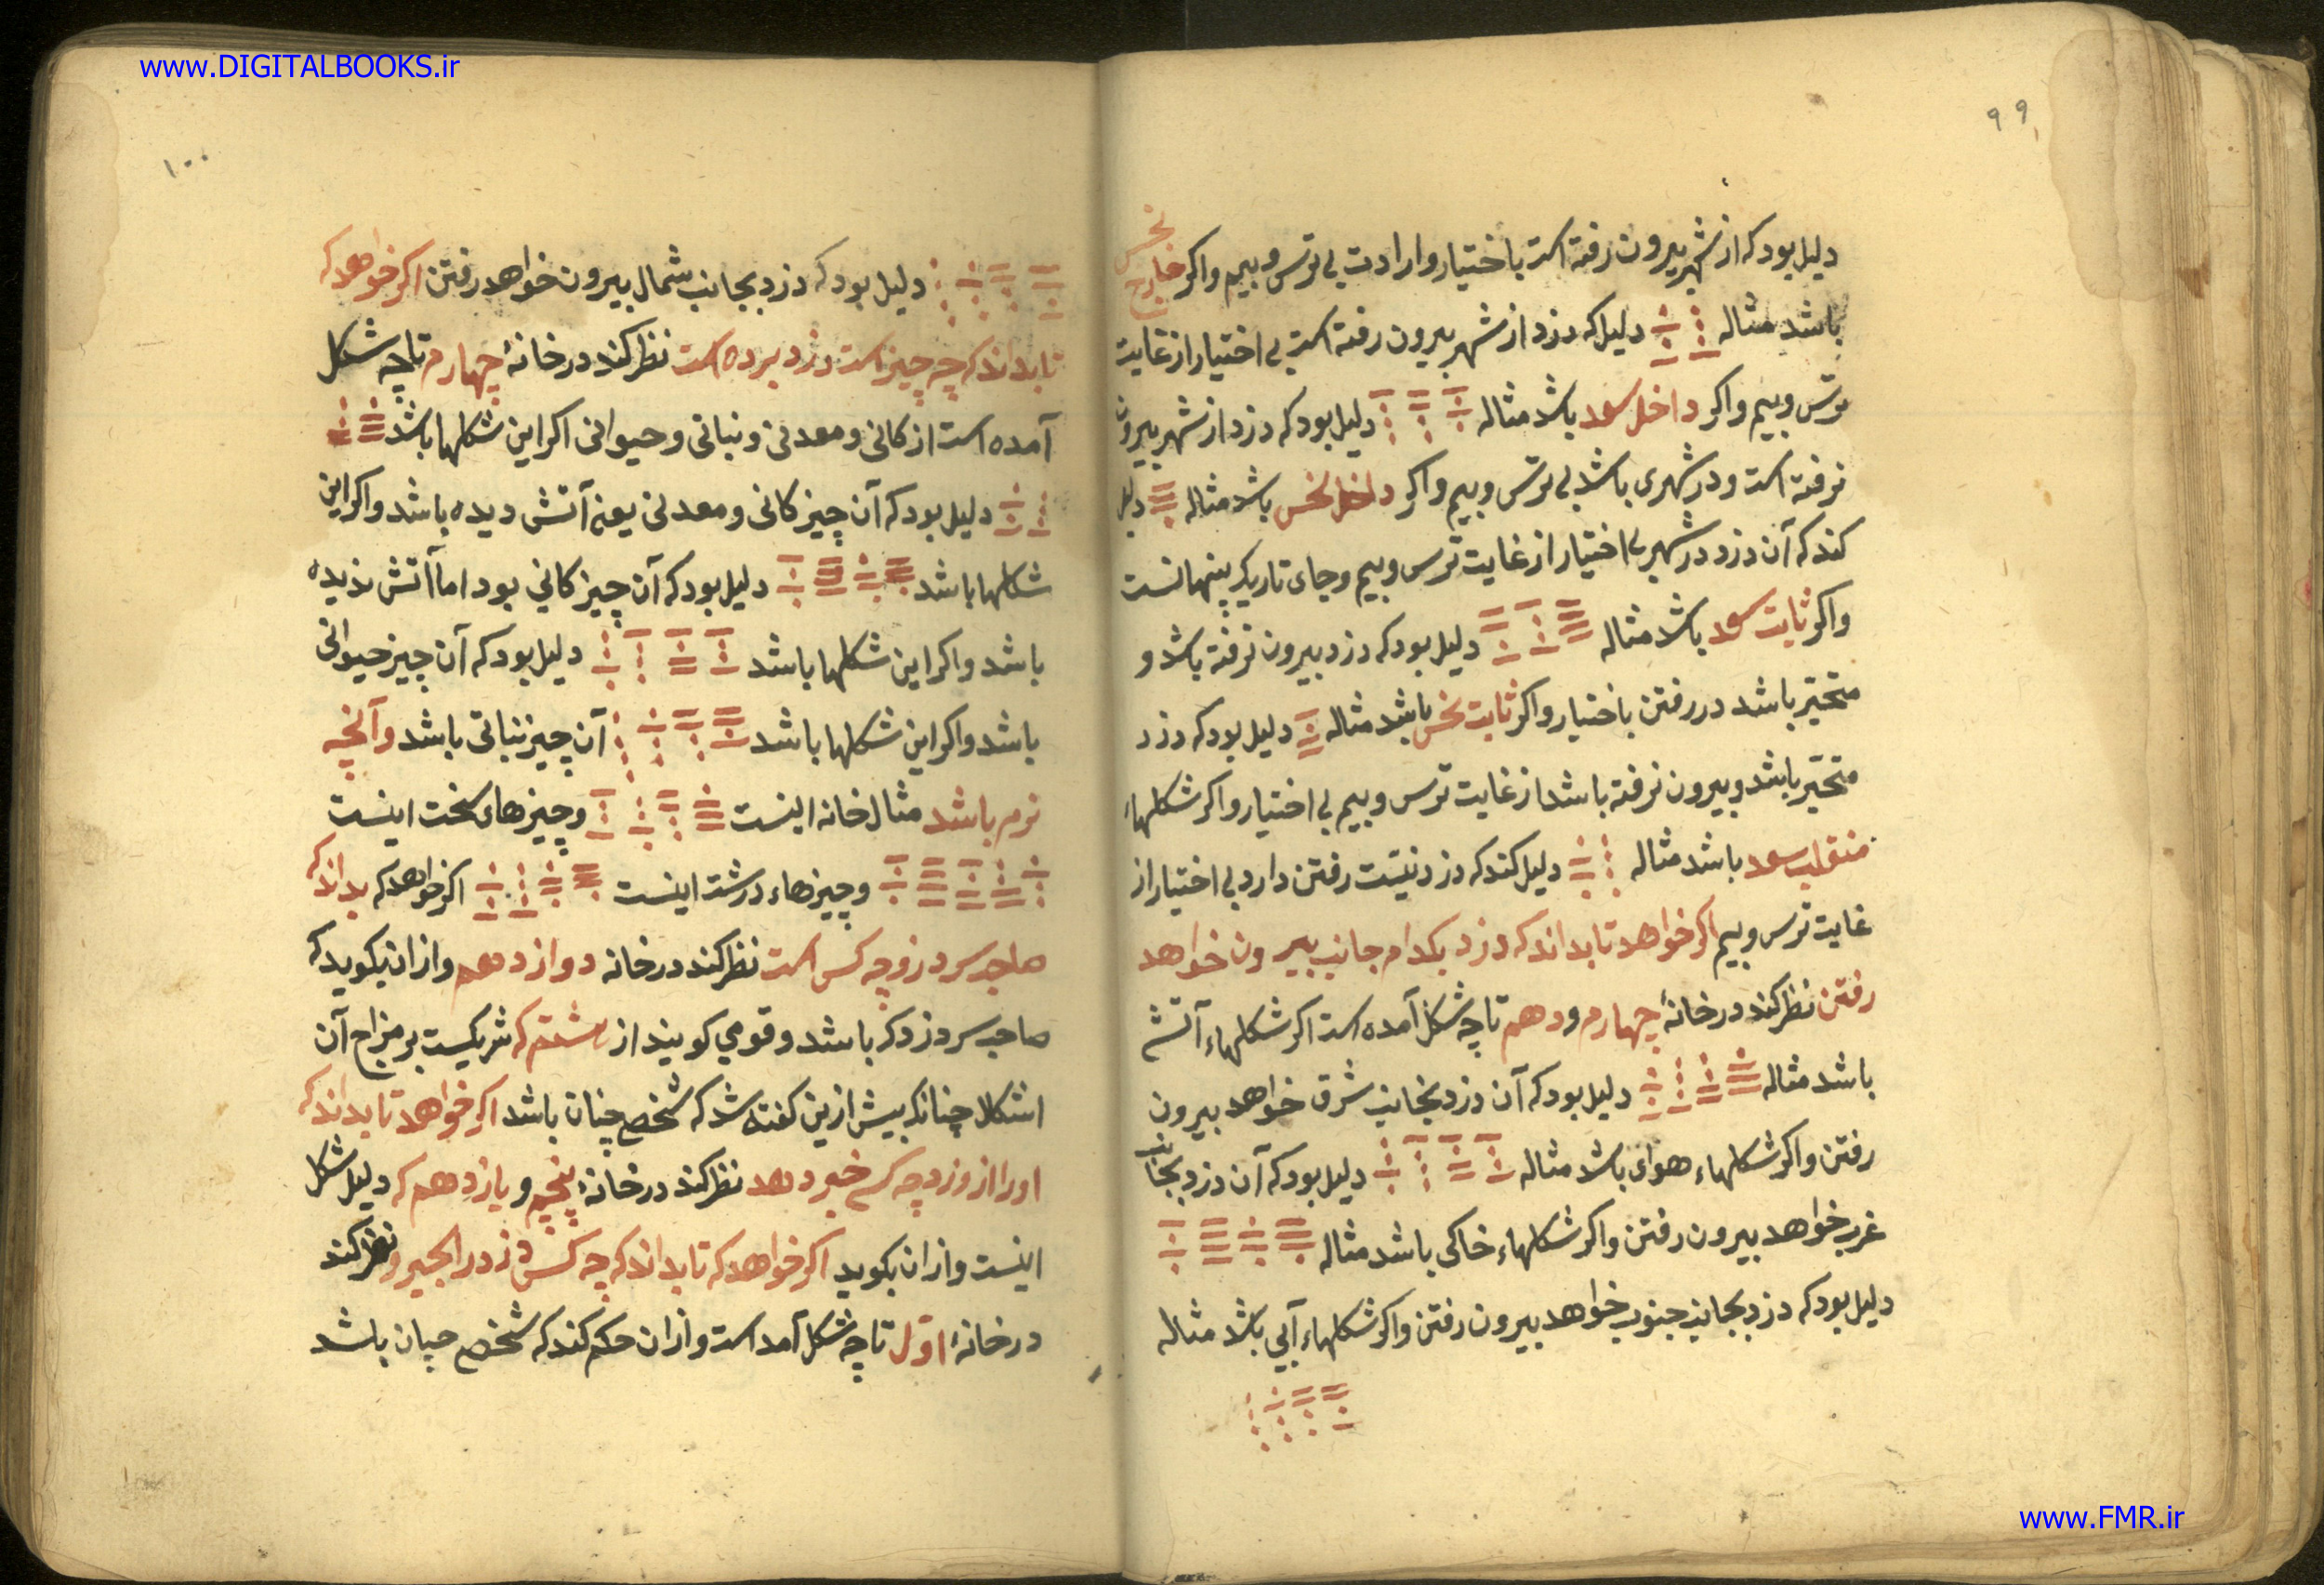 www.DIGITALBOOKS.ir
۹۹
دلیل بود که از شهر بیرون رفته است باختیار و ارادت بی ترس و بیم و اکر خارج نحس
باشد مثاله دلیل که دزد از شهر بیرون رفته است بی اختیار از غایت
ترس و بیم و اکر داخل سعد باشد مثاله دلیل بود که دزد از شهر بیرون
نرفته است و در شهری باشد بی ترس و بیم و اکر داخل نحس باشد مثاله دلیل
کند که آن دزد در شهر بی اختیار از غایت ترس و بیم و جای تاریک پنهانست
و اکر ثابت سعد باشد مثاله دلیل بود که دزد بیرون نرفته باشد و
متحیّر باشد در رفتن باختیار و اکر ثابت نحس باشد مثاله دلیل بود که دزد
متحیّر باشد و بیرون نرفته باشد از غایت ترس و بیم بی اختیار و اکر شکلهاء
منقلب سعد باشد مثاله دلیل کند که دزد نیّت رفتن دارد بی اختیار از
غایت ترس و بیم اکر خواهد تا بداند که دزد بکدام جانب بیرون خواهد
رفتن نظر کند در خانهٔ چهارم و دهم تا چه شکل آمده است اکر شکلهاء آتشی
باشد مثاله دلیل بود که آن دزد بجانب شرق خواهد بیرون
رفتن و اکر شکلهاء هوای باشد مثاله دلیل بود که آن دزد بجانب
غرب خواهد بیرون رفتن و اکر شکلهاء خاکی باشد مثاله
دلیل بود که دزد بجانب جنوب خواهد بیرون رفتن و اکر شکلهاء آبی باشد مثاله
۱۰۰
دلیل بود که دزد بجانب شمال بیرون خواهد رفتن اکر خواهد که
تا بداند که چه چیز است دزد برده است نظر کند در خانهٔ چهارم تا چه شکل
آمده است از کانی و معدنی و نباتی و حیوانی اکر این شکلها باشد
دلیل بود که آن چیز کانی و معدنی یعنی آتش دیده باشد و اکر این
شکلها باشد دلیل بود که آن چیز کانی بود اما آتش ندیده
باشد و اکر این شکلها باشد دلیل بود که آن چیز حیوانی
باشد و اکر این شکلها باشد آن چیز نباتی باشد و آنچه
نرم باشد مثال خانه اینست و چیزهای سخت اینست
و چیزهاء درشت اینست اکر خواهد که بداند که
صاحب سر دزد چه کس است نظر کند در خانه دوازدهم و از آن بکوید که
صاحب سر دزد که باشد و قومی کویند از هشتم که شریکیست بر مزاج آن
اشکلا چنانک بیش ازین کفته شد که شخص چنان باشد اکر خواهد تا بداند که
او را از دزد چه کس خبر دهد نظر کند در خانهٔ پنجم و یازدهم که دلیل شکل
اینست و از آن بکوید اکر خواهد که تا بداند که چه کس دزد را بکیرد نظر کند
در خانهٔ اوّل تا چه شکل آمد است و از آن حکم کند که شخص چنان باشد
www.FMR.ir